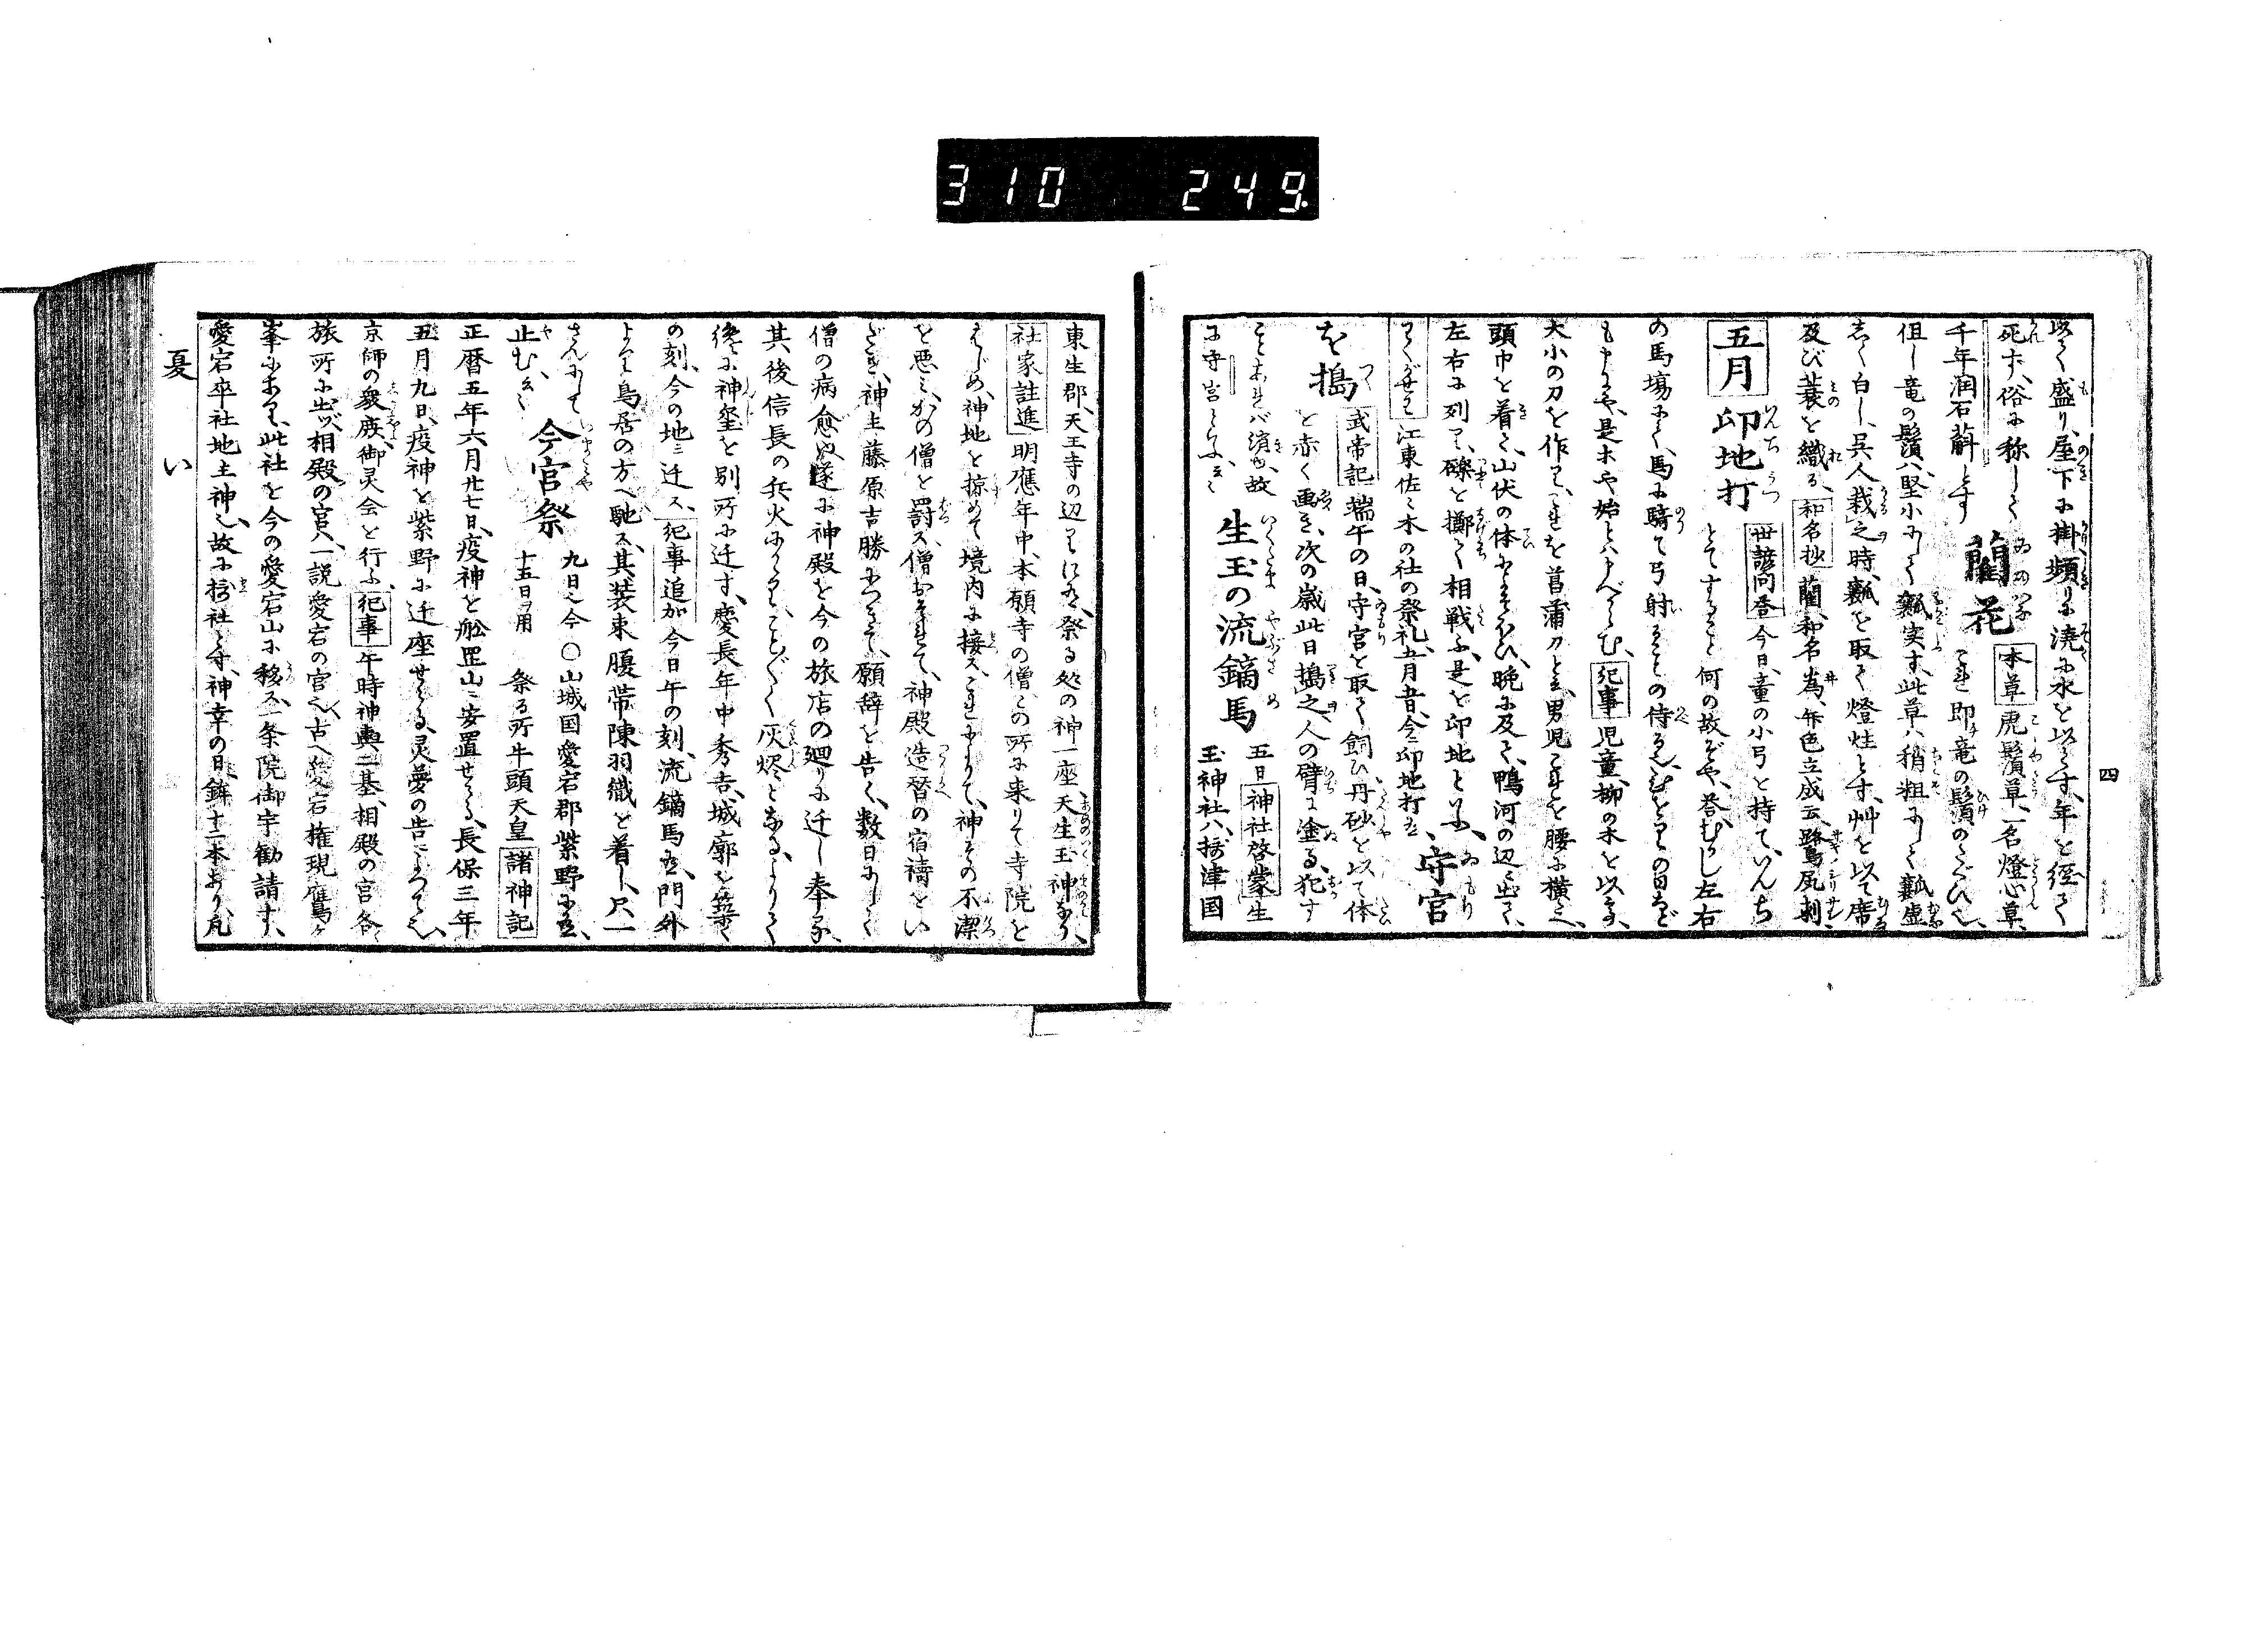 310 249.
四
以て盛り、屋下に掛頻りに澆に水を以てす、年を經て
死す、俗に称して
千年润石蔛とす
藺花
本草 虎鬚草、一名燈心草、
これ即竜の鬚のたぐひ也、
但し竜の鬚ハ堅小にして瓤実す、此草ハ稍粗にして瓤虚
しく白し、呉人栽之時、瓤を取て燈炷とす、艸を以て席
及び蓑を織る、和名抄 藺、和名為、弁色立成云、鷺尻刺、
五月
印地打
世諺問答 今日、童の小弓を持て、いんぢ
とてすること何の故ぞや、答、むかし左右
の馬場にて、馬に騎て弓射ることの侍る也、
もうすにや、是木や始とハすべからむ、紀事 児童、柳の木を以て
大小の刀を作りて、これを菖蒲刀と云、男児これを腰に横へ、
頭巾を着て、山伏の体によそほひ、晩に及て、鴨河の辺に出て、
左右に列り、礫を擲て相戦ふ、是を印地といふ、
守宮
江東佐々木の社の祭礼、五月昔、今云印地打云
を搗
武帝記 端午の日、守宮を取て飼ひ丹砂を以て体
を赤く画き、次の歳此日搗之、人の臂に塗る、犯す
ことあれバ消ゆ、故
に守宮といふ云々
生玉の流鏑馬
五日 神社啓蒙 生
玉神社ハ、摂津国
東生郡、天王寺の辺りにあり、祭る処の神一座、天生玉神なり、
社家註進 明應年中、本願寺の僧この所に来りて寺院を
はじめ、神地を掠めて境内に接ス、これによりて、神その不潔
を悪ミ、かの僧を罰ス、僧おそれて、神殿造替の宿祷をい
だき、神主藤原吉勝につきて、願辞を告く、数日にして
僧の病愈ぬ、遂に神殿を今の旅店の廻りに迁し奉る、
其後信長の兵火にかゝり、ことごとく灰烬となる、よりて
後に神璽を別所に迁す、慶長年中秀吉、城廓を築て
の刻、今の地ニ迁ス、紀事追加 今日午の刻、流鏑馬有、門外
より鳥居の方へ馳ス、其装束腹帯陳羽織を着し、尺一
さんにして
止む、云々
今宮祭
九日也今
十五日ヲ用
○山城国愛宕郡紫野に有、
祭る所牛頭天皇 諸神記
正暦五年六月廿七日、疫神を舩罡山ニ安置せらる、長保三年
五月九日、疫神を紫野に迁座せらる、灵夢の告によつて也、
京師の衆庶、御灵会を行ふ、紀事 午時神輿二基、相殿の宮各
旅所に出ヅ、相殿の宮ハ、一説愛宕の宮也、古へ愛宕権現鷹ヶ
峯にあり、此社を今の愛宕山に移ス、一条院御宇勧請す、
愛宕卒社地主神也、故に摂社とす、神幸の日、鉾十二本あり、凡
夏
い